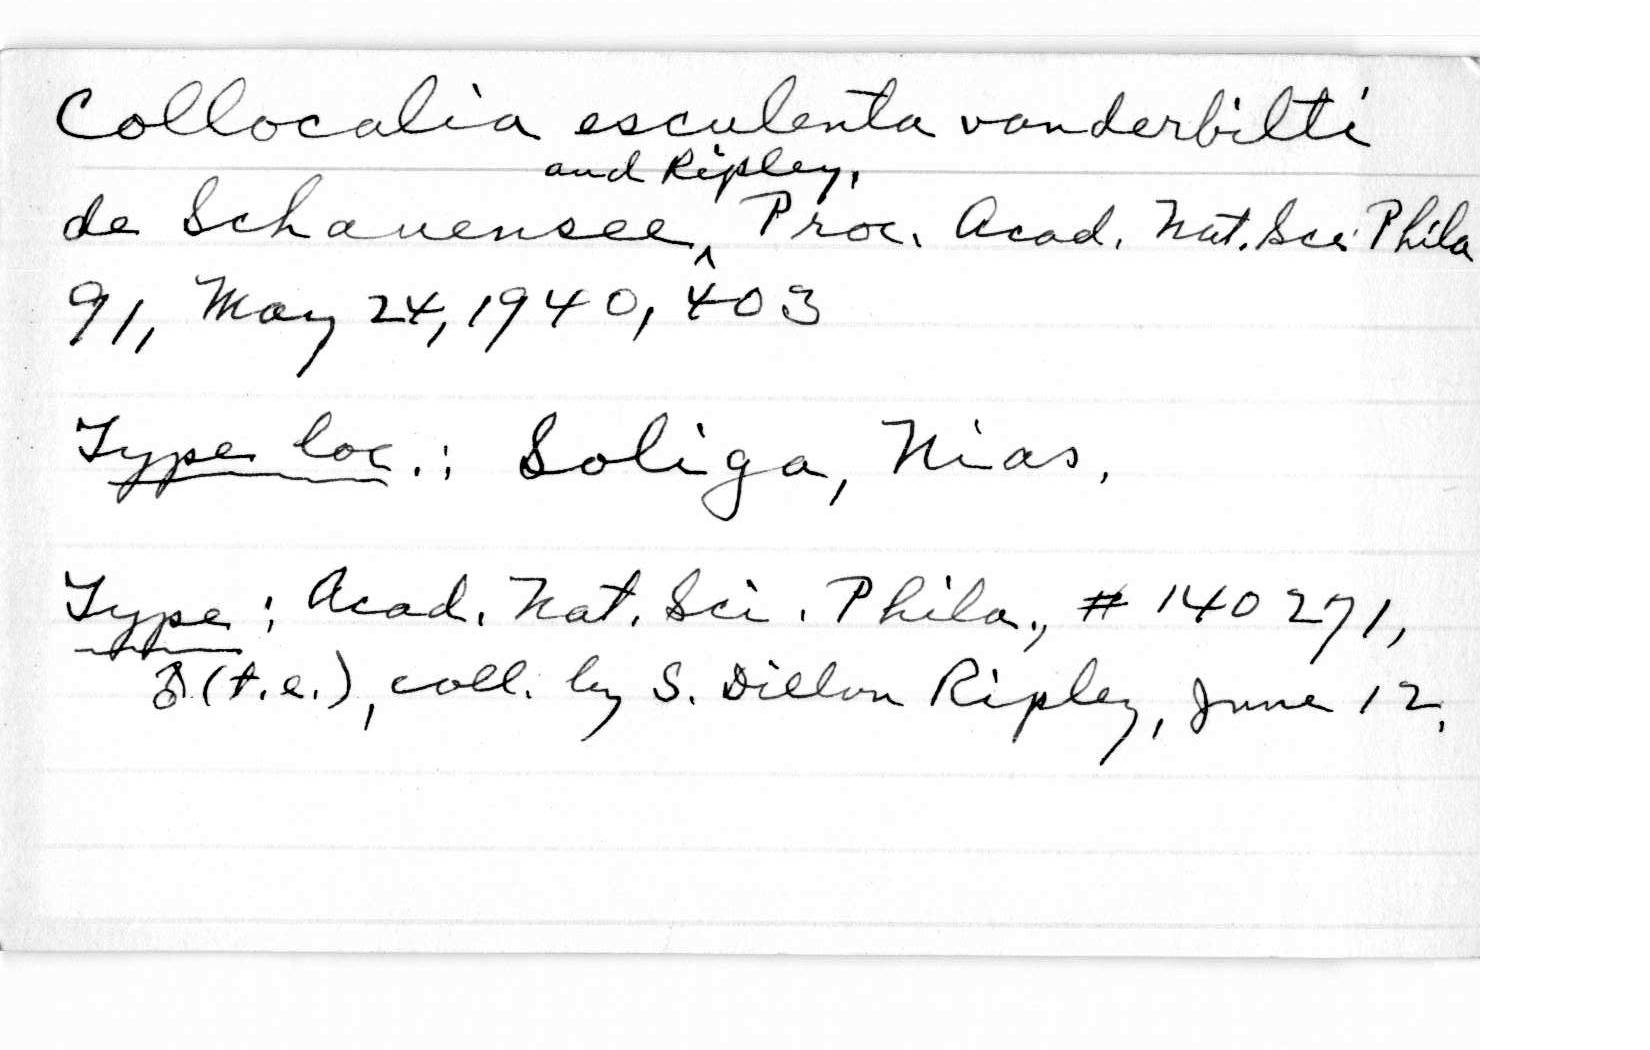 Collocalia esculenta vanderbilti
and Ripley,
de Schauensee, Proc. Acad. Nat. Sci Phila
91, May 24, 1940, 403
Type loc.: Soliga, Nias,
Type: Acad. Nat. Sci. Phila., # 140271,
♂ (t.e.), coll. by S. Dillon Ripley, June 12,